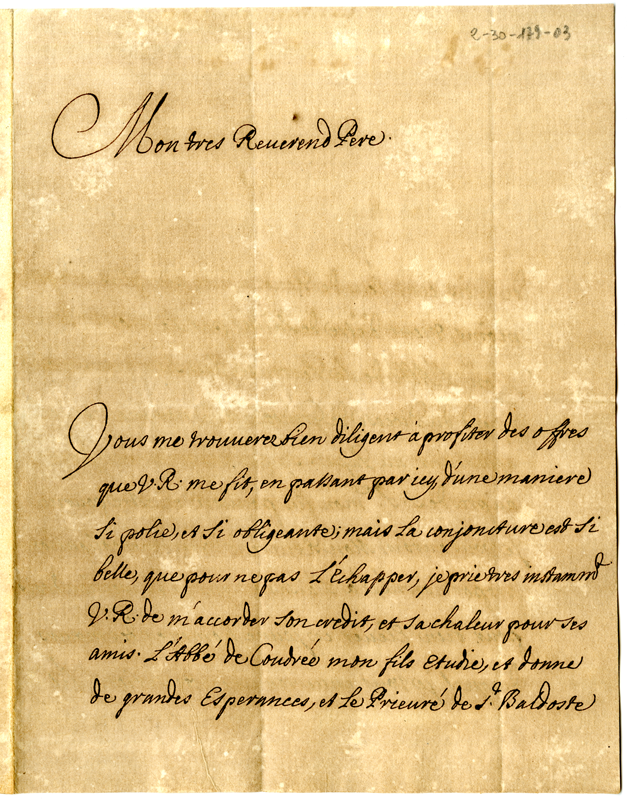 2-30-179-03
Mon tres Reverend Pere.
Vous me trouverez bien diligent à profiter des offres
que V. R. me fit, en passant par icy, d'une maniere
si polie, et si obligeante; mais la conjoncture est si
belle, que pour ne pas L'Echapper, je prie tres instammt
V. R. de m'accorder son credit, et sa chaleur pour ses
amis. L'Abbé de Coudreé mon fils Etudie, et donne
de grandes Esperances, et Le Prieuré de St. Baldoste